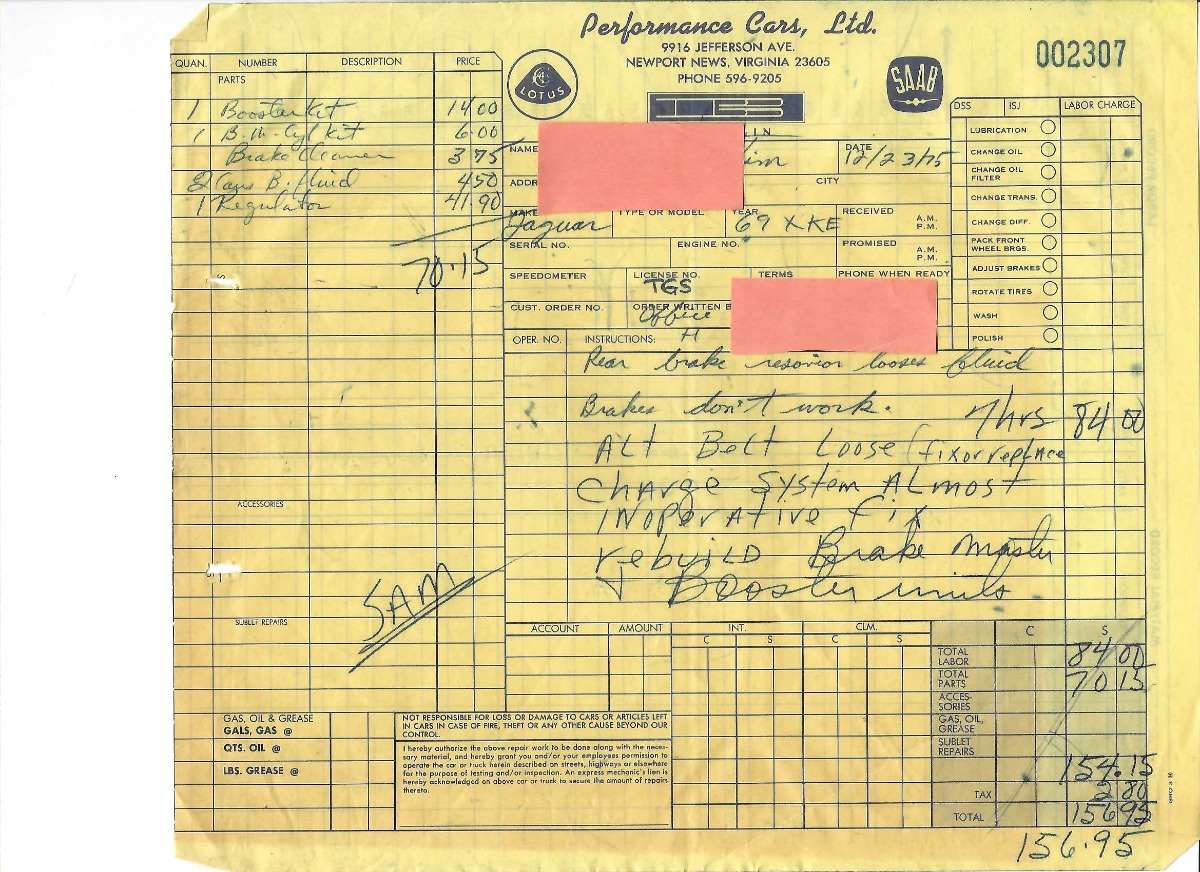 Performance Cars, Ltd.
9916 JEFFERSON AVE.
NEWPORT NEWS, VIRGINIA 23605
PHONE 596-9205
002307
LOTUS
SAAB
QUAN. NUMBER DESCRIPTION PRICE
PARTS
1 Booster Kit 14 00
1 B. M. Cyl Kit 6.00
Brake Cleaner 3 75
2 Cans B. fluid 4 50
1 Regulator 41.90
70.15
ACCESSORIES
SAM
SUBLET REPAIRS
GAS, OIL & GREASE
GALS, GAS @
QTS. OIL @
LBS. GREASE @
NAME
DATE 12/23/75
ADDR
CITY
MAKE Jaguar
TYPE OR MODEL
YEAR 69 XKE
RECEIVED A.M. P.M.
SERIAL NO.
ENGINE NO.
PROMISED A.M. P.M.
SPEEDOMETER
LICENSE NO. TGS
TERMS
PHONE WHEN READY
CUST. ORDER NO.
ORDER WRITTEN B
Office
OPER. NO. INSTRUCTIONS:
DSS ISJ LABOR CHARGE
LUBRICATION
CHANGE OIL
CHANGE OIL FILTER
CHANGE TRANS.
CHANGE DIFF.
PACK FRONT WHEEL BRGS.
ADJUST BRAKES
ROTATE TIRES
WASH
POLISH
Rear brake resovior looses fluid
Brakes don't work. 7hrs 84 00
Alt Belt Loose (fix or replace
Charge System Almost
inoperative fix
rebuild Brake master
+ Booster units
ACCOUNT AMOUNT INT. CLM.
C S C S C S
TOTAL LABOR 84 00
TOTAL PARTS 70 15
ACCESSORIES
GAS, OIL, GREASE
SUBLET REPAIRS
154.15
TAX 2 80
TOTAL 156 95
156.95
NOT RESPONSIBLE FOR LOSS OR DAMAGE TO CARS OR ARTICLES LEFT
IN CARS IN CASE OF FIRE, THEFT OR ANY OTHER CAUSE BEYOND OUR
CONTROL.
I hereby authorize the above repair work to be done along with the neces-
sary material, and hereby grant you and/or your employees permission to
operate the car or truck herein described on streets, highways or elsewhere
for the purpose of testing and/or inspection. An express mechanic's lien is
hereby acknowledged on above car or truck to secure the amount of repairs
thereto.